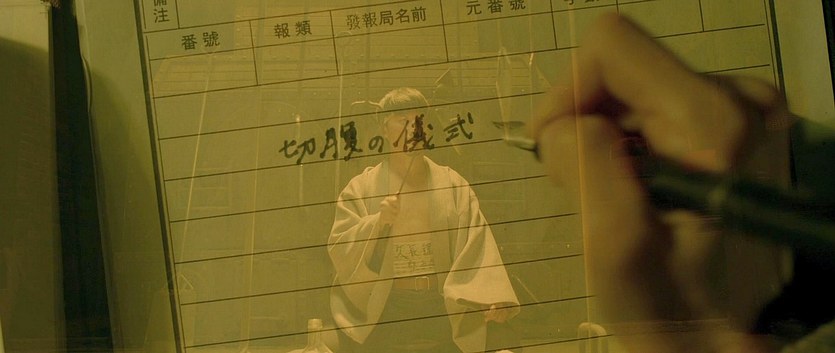 備注
番號 報類 發報局名前 元番號
切腹の儀式